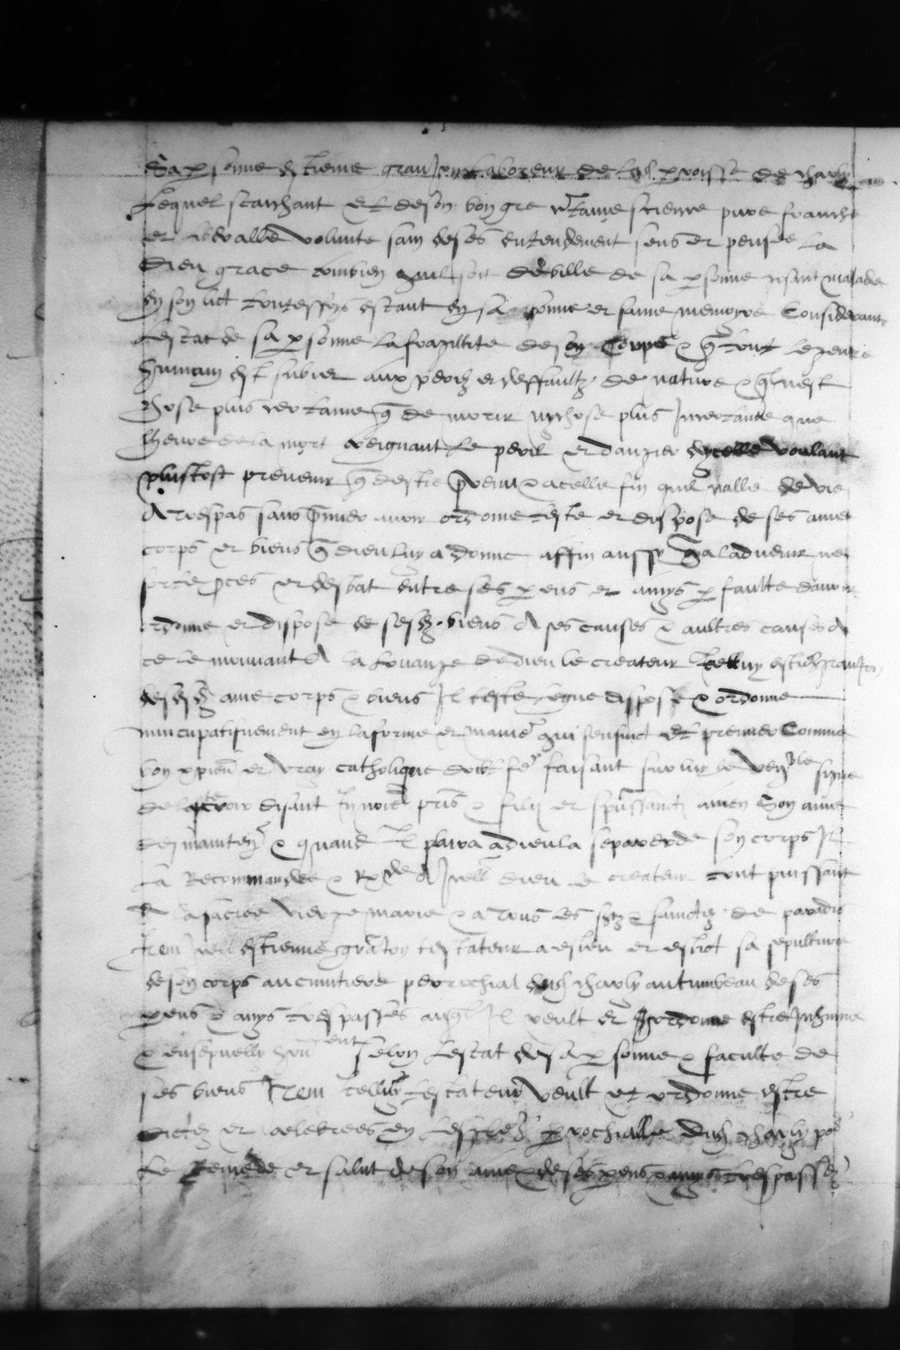 sa psonne estienne graujon laboreur de lad pvoisse de charly
Lequel scaichant et de son bon gre certaine science pure franche
et liberalle volunte sain de ses entendement sens et pensee la
dieu grace combien quil soit debille de sa psonne gisant malade
en son lict toutesfoys estant en sa bonne et saine memoyre Considerant
lestat de sa psonne la fragillite de son Corps & que tout le genre
humain est subiect aux perilz et deffaultz de nature & quil nest
chose plus certaine que de morir ny chose plus incertaine que
lheure de la mort craignant le peril et dangier dycelle voulant
plustost prevenir que destre prevenu & a celle fin quil naille de vie
A trespas sans premier avoir ordonne teste et dispose de ses ame
corps et biens que dieu luy a donne affin aussy que a ladvenir ne
proces et desbat entre ses pens et amys p faulte davoir
ordonne et dispose de sesd biens A ces causes & aultres causes A
ce le mouvant A la louange de dieu le createur Icelluy estienne graujon
desd ame corps & biens Il teste legue dispose & ordonne
nuncupatifvement en la forme et maniere qui sensuict Et premier Comme
bon xpien et vray catholique doibt fe faisant sur luy le venble signe
de la croix disant In noie pris & filij et spussancti amen Son ame
des maintenant & quand Il plaira a dieu la separer de son corps Il
la Recommandee & Rx A Icell dieu le createur tout puissant
A la sacree vierge marie & a tous les sctz & sainctes de paradis
Item led estienne graujon testateur a esleu et eslict sa sepulture
de son corps au cimitiere perrochial dud charly au tumbeau de ses
pens & amys trespasses auql Il veult et ordonne estre Inhume
& ensepvelly selon lestat de sa psonne & faculte de
ses biens Item celluy testateur veult et ordonne estre
dictes et celebrees en lesglise pvochialle dud charly por
le Remede et salut de son ame & de ses pens & amys trespasses